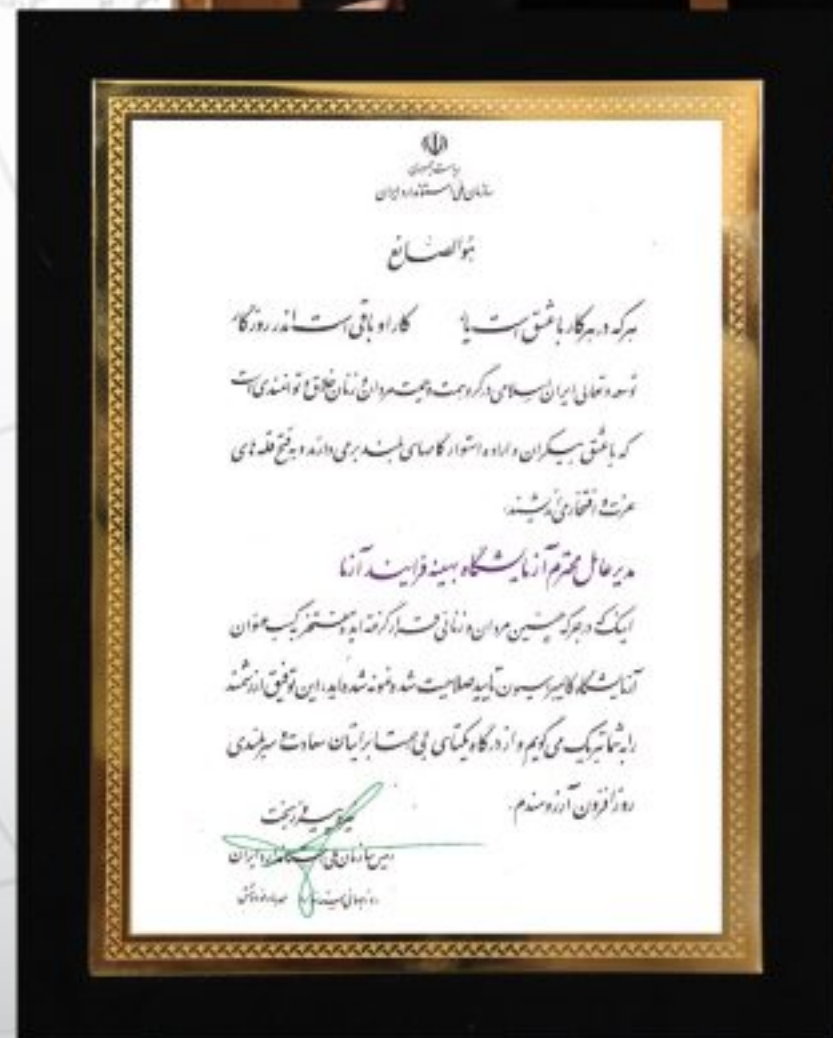 ریاست جمهوری
سازمان ملی استاندارد ایران
هوالصانع
هرکه در هرکار با عشق است یار کار او باقی است اندر روزگار
توسعه و تعالی ایران اسلامی در گرو همت و حمیت مردان و زنان خلاق و توانمندی است
که با عشق بیکران و اراده استوار گامهای بلند برمی دارند و به فتح قله های
عزت و افتخار می اندیشند.
مدیرعامل محترم آزمایشگاه بهینه فرایند آزما
اینک که در جرگه چنین مردان و زنانی قرار گرفته اید و مفتخر به کسب عنوان
آزمایشگاه کالیبراسیون تایید صلاحیت شده نمونه شده اید، این توفیق ارزشمند
را به شما تبریک می گویم و از درگاه یکتای بی همتا برایتان سعادت و سربلندی
روزافزون آرزومندم.
نیره پیروزبخت
رییس سازمان ملی استاندارد ایران
روز جهانی استاندارد